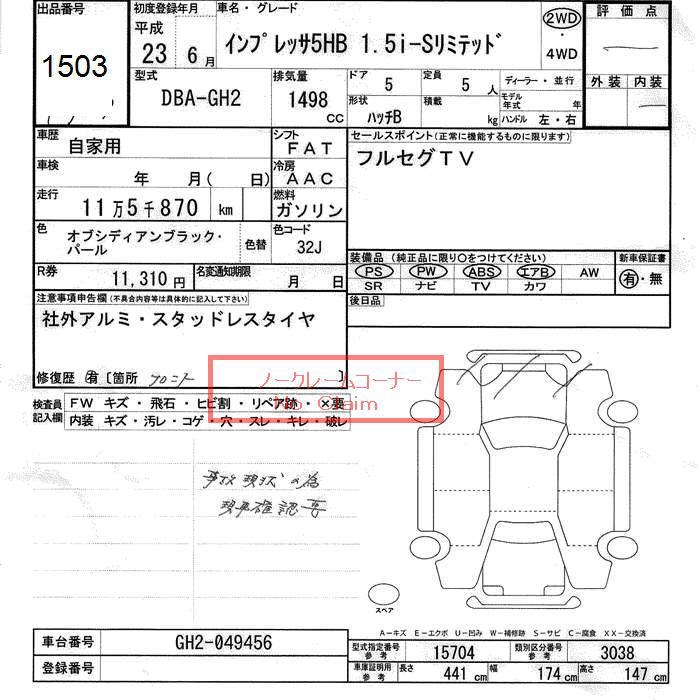 出品番号
1503
初度登録年月
平成
23 6 月
車名・グレード
インプレッサ5HB 1.5i-Sリミテッド
2WD
・
4WD
評価点
外装 内装
型式
DBA-GH2
排気量
1498
CC
ドア
5
定員
5 人
ディーラー・並行
モデル年式 年
形状
ハッチB
積載
kg
ハンドル 左・右
車歴
自家用
シフト
FAT
車検
年 月( 日)
冷房
AAC
走行
11万5千870 km
燃料
ガソリン
色
オブシディアンブラック・
パール
色替
色コード
32J
R券
11,310円
名変通知期限
月 日
セールスポイント(正常に機能するものに限ります)
フルセグTV
装備品 (純正品に限り○をつけてください)
PS PW ABS エアB AW
SR ナビ TV カワ
新車保証書
有・無
後日品
注意事項申告欄(不具合内容等は具体的に記入して下さい)
社外アルミ・スタッドレスタイヤ
修復歴 有 〔箇所 フロント 〕
ノークレームコーナー
No Claim
検査員
記入欄
FW キズ・飛石・ヒビ割・リペア跡・×要
内装 キズ・汚レ・コゲ・穴・スレ・キレ・破レ
事故現状の為
現車確認要
スペア
A－キズ E－エクボ U－凹み W－補修跡 S－サビ C－腐食 XX－交換済
車台番号
GH2-049456
登録番号
型式指定番号
参考
15704
類別区分番号
参考
3038
車庫証明用
参考
長さ
441 cm
幅
174 cm
高さ
147 cm